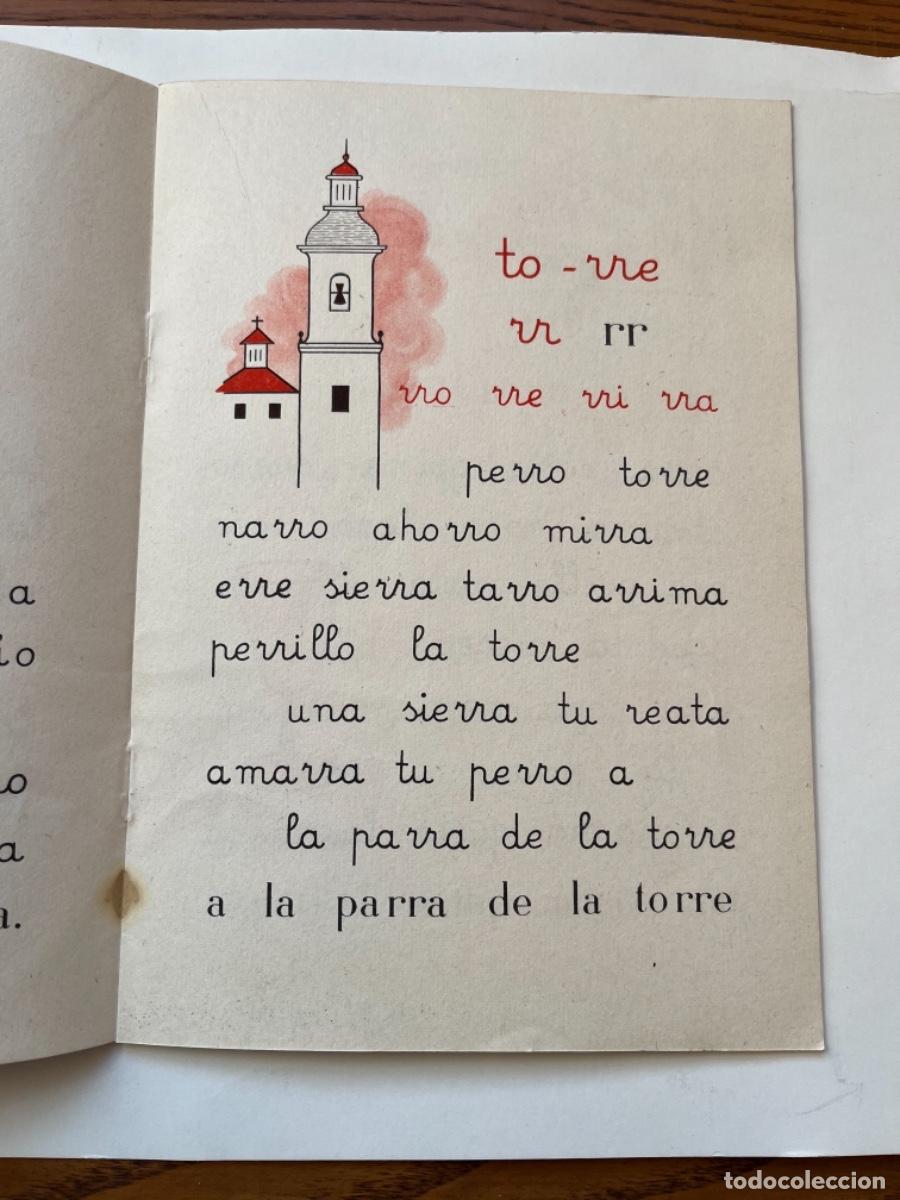 to - rre
rr rr
rro rre rri rra
perro torre
narro ahorro mirra
erre sierra tarro arrima
perrillo la torre
una sierra tu reata
amarra tu perro a
la parra de la torre
a la parra de la torre
a
io
o
a
a.
todocoleccion